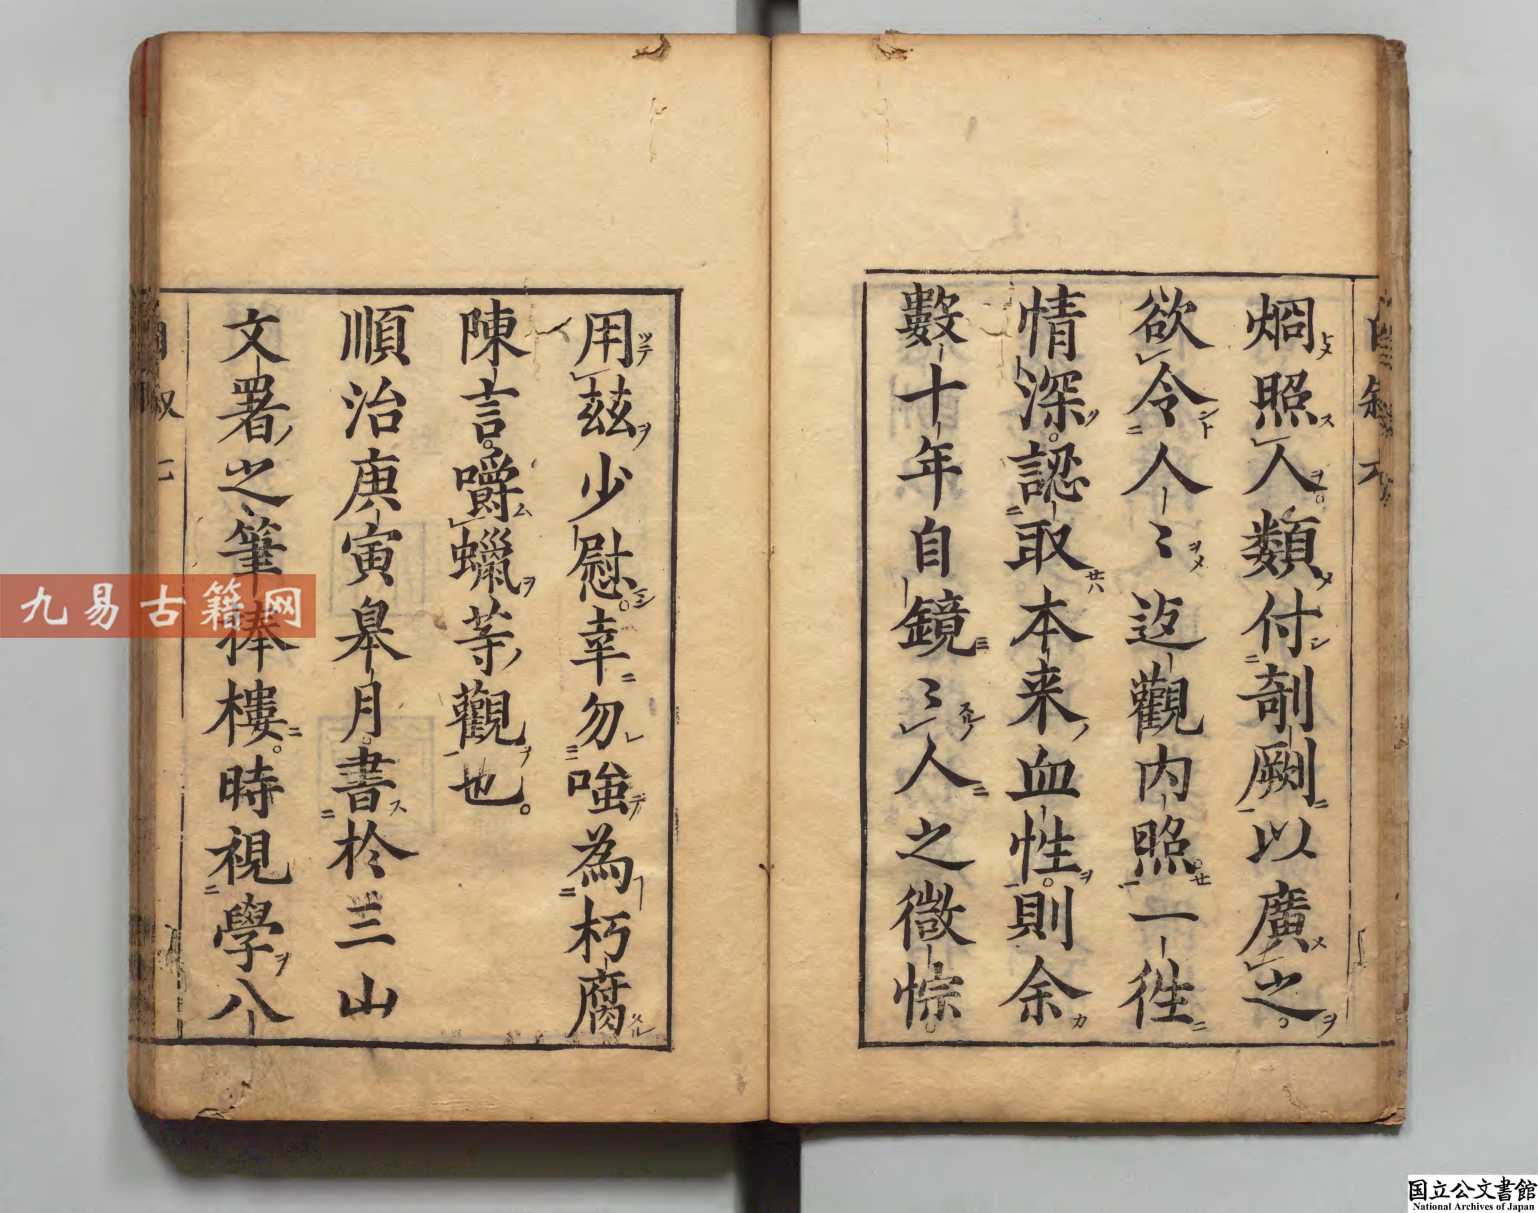 炯照人類付剞劂以廣之
欲令人〻返觀内照一徃
情深認取本来血性則余
數十年自鏡〻人之微悰
用茲少慰幸勿嗤為朽腐
陳言嚼蠟等觀也
順治庚寅皋月書於三山
文署之筆捧樓時視學八
九易古籍网
国立公文書館
National Archives of Japan